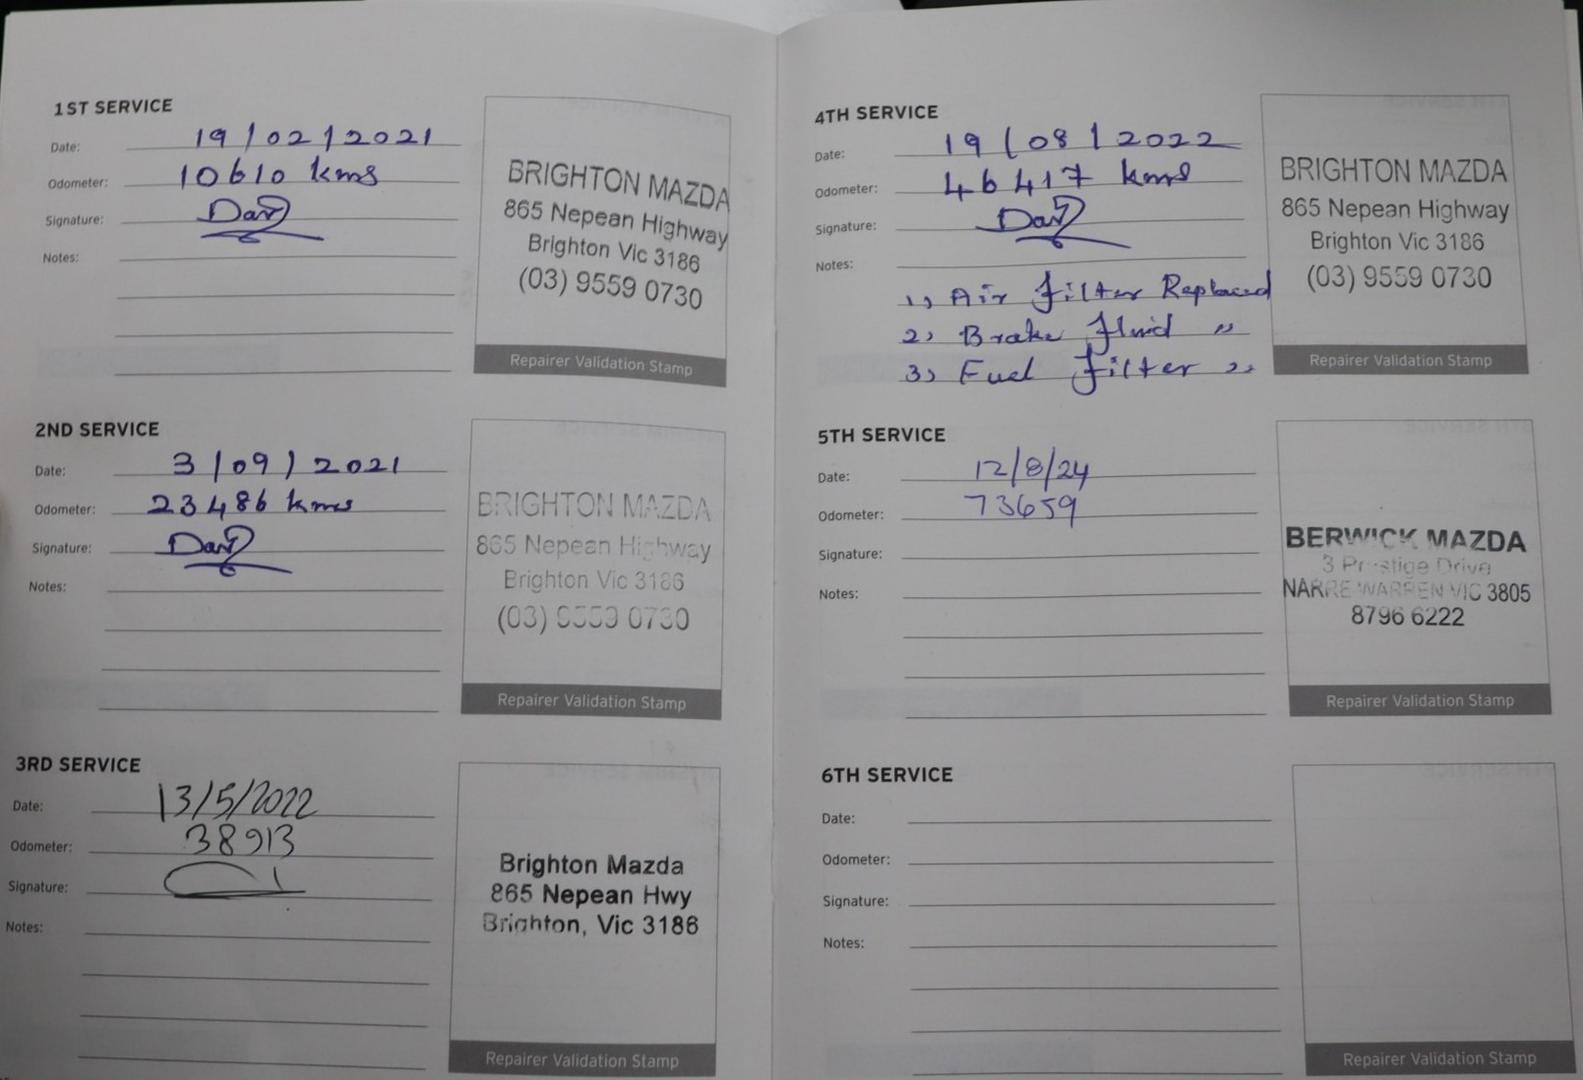 1ST SERVICE
Date: 19/02/2021
Odometer: 10610 kms
Signature:
Notes:
BRIGHTON MAZDA
865 Nepean Highway
Brighton Vic 3186
(03) 9559 0730
Repairer Validation Stamp
2ND SERVICE
Date: 3/09/2021
Odometer: 23486 kms
Signature:
Notes:
BRIGHTON MAZDA
865 Nepean Highway
Brighton Vic 3186
(03) 9559 0730
Repairer Validation Stamp
3RD SERVICE
Date: 13/5/2022
Odometer: 38913
Signature:
Notes:
Brighton Mazda
865 Nepean Hwy
Brighton, Vic 3186
Repairer Validation Stamp
4TH SERVICE
Date: 19/08/2022
Odometer: 46417 kms
Signature:
Notes:
1) Air filter Replaced
2) Brake fluid "
3) Fuel filter "
BRIGHTON MAZDA
865 Nepean Highway
Brighton Vic 3186
(03) 9559 0730
Repairer Validation Stamp
5TH SERVICE
Date: 12/8/24
Odometer: 73659
Signature:
Notes:
BERWICK MAZDA
3 Prestige Drive
NARRE WARREN VIC 3805
8796 6222
Repairer Validation Stamp
6TH SERVICE
Date:
Odometer:
Signature:
Notes:
Repairer Validation Stamp